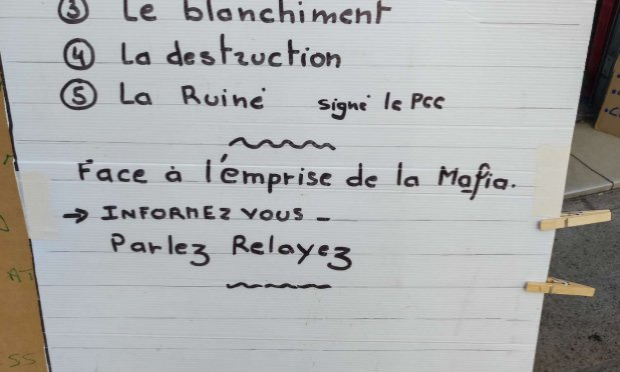 ③ Le blanchiment
④ La destruction
⑤ La Ruiné signé le PCC
Face à l'émprise de la Mafia.
→ INFORMEZ VOUS -
Parlez Relayez